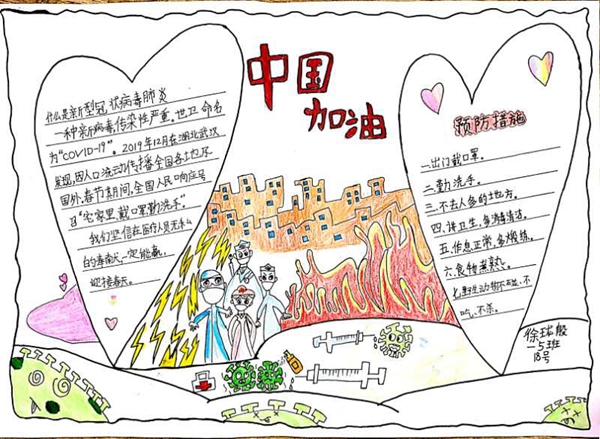 中国
加油
什么是新型冠状病毒肺炎
一种新病毒,传染性严重,世卫命名
为“COVID-19”。2019年12月在湖北武汉
发现,因人口流动传播全国各地及
国外,春节期间,全国人民响应号
召“宅家里,戴口罩勤洗手。”
我们坚信在医疗人员无私
的奉献下一定能赢。
迎接春天。
预防措施
一.出门戴口罩。
二.勤洗手。
三.不去人多的地方。
四.讲卫生,多清洁。
五.作息正常,多锻炼。
六.食物煮熟。
七.野生动物不碰、不
吃、不杀。
徐
一5班
18号